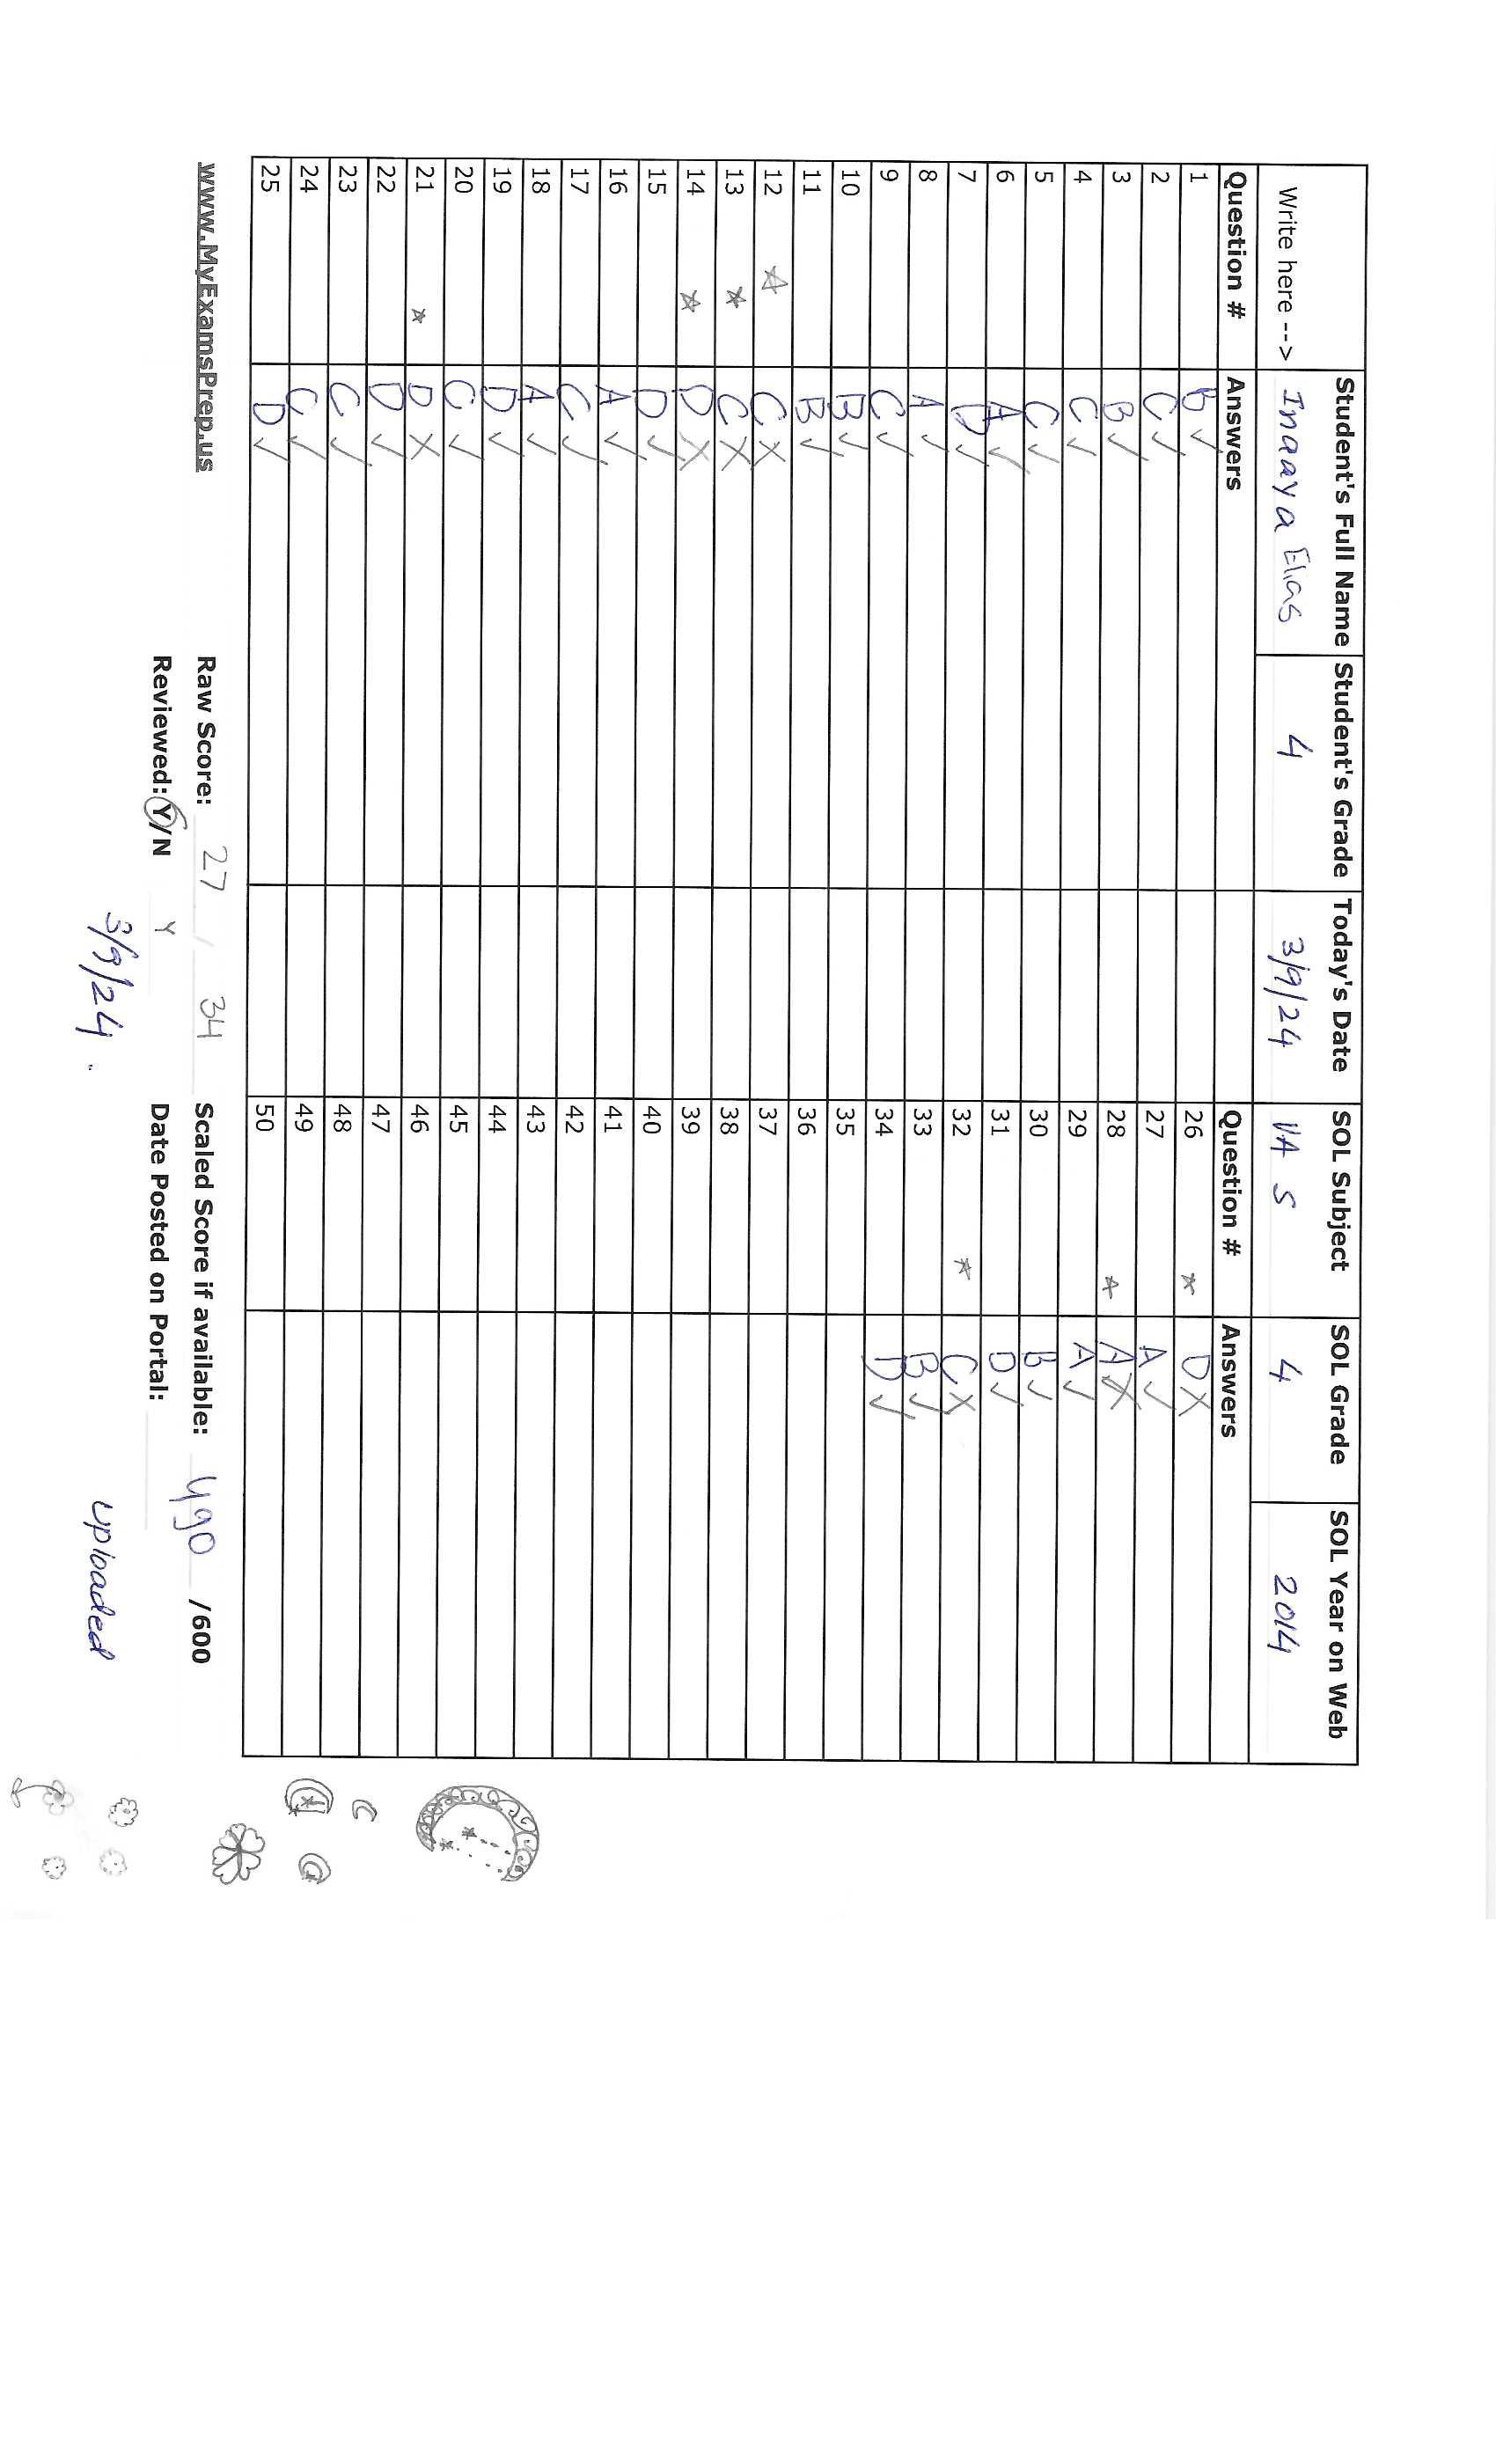 Student's Full Name Student's Grade Today's Date SOL Subject SOL Grade SOL Year on Web
Write here --> Inaaya Elias 4 3/9/24 VA S 4 2014
Question # Answers Question # Answers
1 B ✓ 26 * D X
2 C ✓ 27 A ✓
3 B ✓ 28 * A X
4 C ✓ 29 A ✓
5 C ✓ 30 B ✓
6 A ✓ 31 D ✓
7 D ✓ 32 * C X
8 A ✓ 33 B ✓
9 C ✓ 34 D ✓
10 B ✓ 35
11 B ✓ 36
12 * C X 37
13 * C X 38
14 * D X 39
15 D ✓ 40
16 A ✓ 41
17 C ✓ 42
18 A ✓ 43
19 D ✓ 44
20 C ✓ 45
21 * D X 46
22 D ✓ 47
23 C ✓ 48
24 C ✓ 49
25 D ✓ 50
www.MyExamsPrep.us Raw Score: 27 / 34 Scaled Score if available: 490 /600
Reviewed: Y/N Y Date Posted on Portal:
3/9/24. uploaded